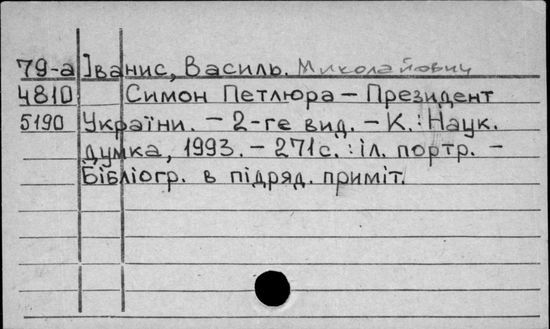 79-а Іванис, Василь. Миколайович
4810 Симон Петлюра – Президент
5190 України. – 2-ге вид. – К.: Наук.
думка, 1993. – 271с. : іл. портр. –
Бібліогр. в підряд. приміт.